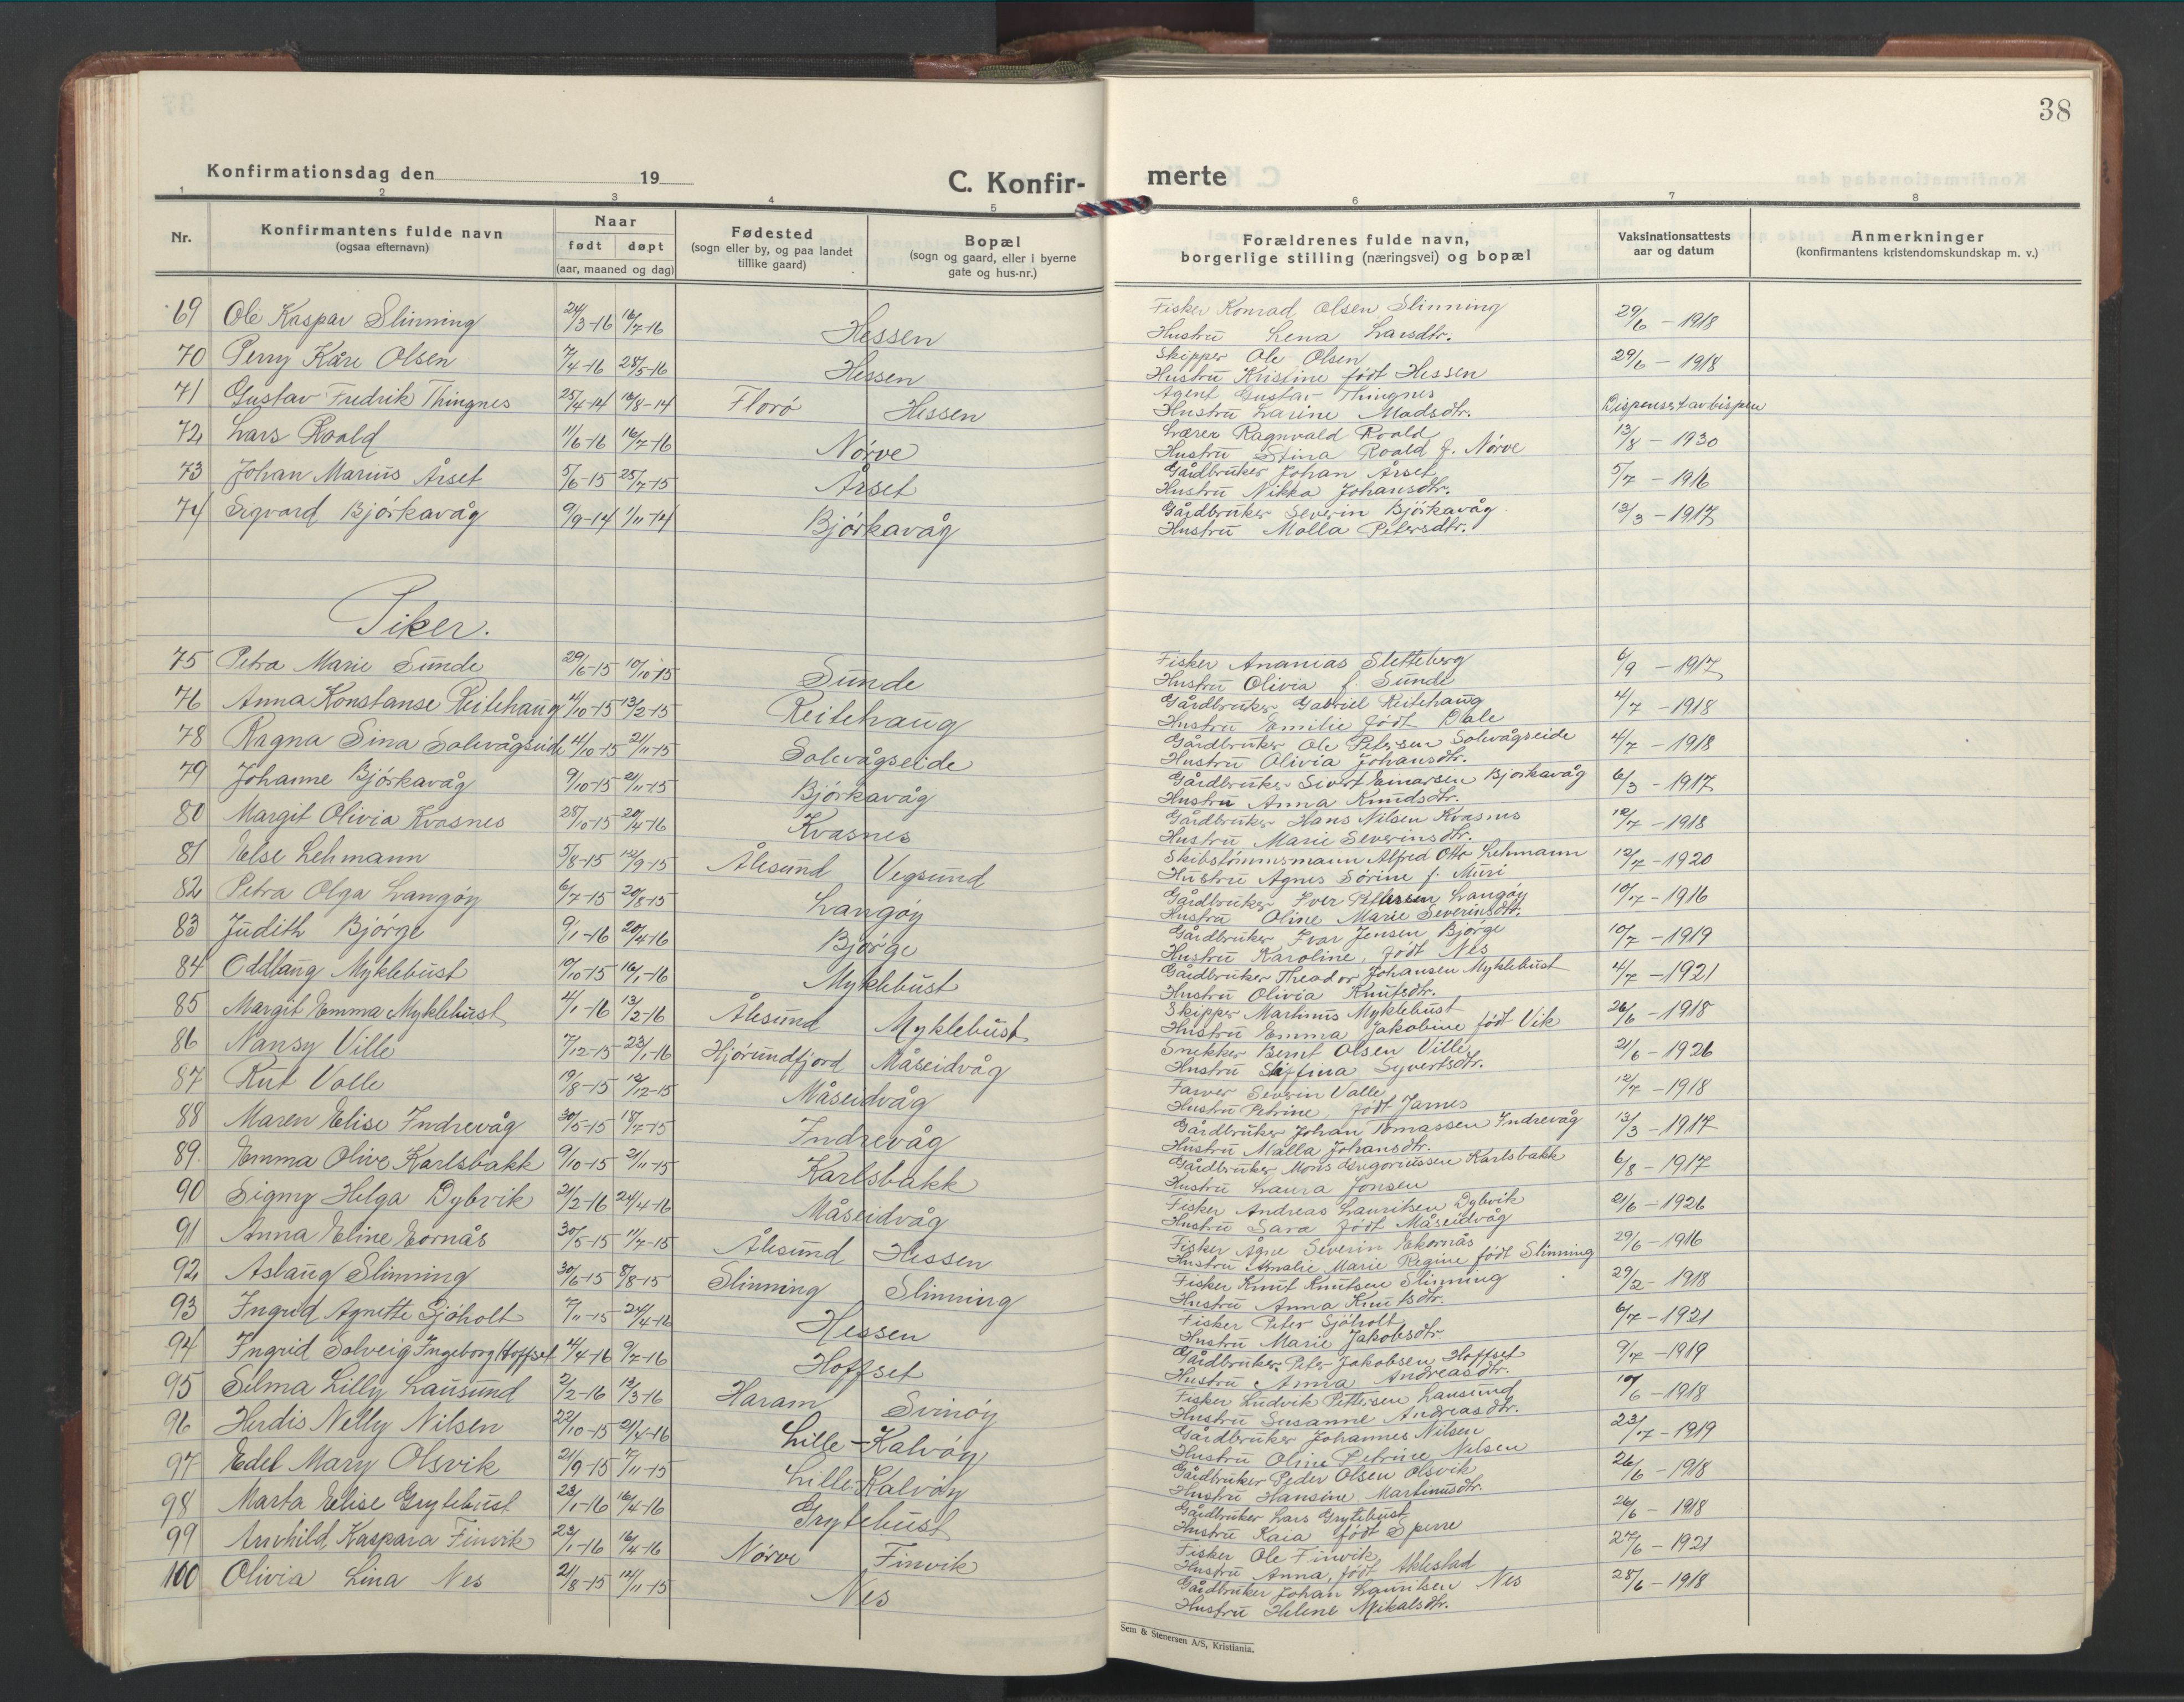 38
Konfirmationsdag den 19
C. Konfir-
merte
1 2 3 4 5 6 7 8
Nr.
Konfirmantens fulde navn
(ogsaa efternavn)
Naar
født døpt
(aar, maaned og dag)
Fødested
(sogn eller by, og paa landet
tillike gaard)
Bopæl
(sogn og gaard, eller i byerne
gate og hus-nr.)
Forældrenes fulde navn,
borgerlige stilling (næringsvei) og bopæl
Vaksinationsattests
aar og datum
Anmerkninger
(konfirmantens kristendomskundskap m. v.)
69 Ole Kaspar Slinning 24/3-16 16/7-16 Hessen Fisker Konrad Olsen Slinning 29/6 - 1918
Hustru Lena Larsdtr.
70 Perry Kåre Olsen 7/4-16 28/5-16 Hessen Skipper Ole Olsen 29/6 - 1918
Hustru Kristine født Hessen
71 Gustav Fredrik Thingnes 25/4-14 16/8-14 Florö Hessen Agent Gustav Thingnes Dispensert av bispen
Hustru Larine Madsdtr.
72 Lars Roald 11/6-16 16/7-16 Nörve Lærer Ragnvald Roald 13/8 - 1930
Hustru Stina Roald f. Nörve
73 Johan Marius Årset 5/6-15 25/7-15 Årset Gårdbruker Johan Årset 5/7 - 1916
Hustru Nikka Johansdtr.
74 Sigvard Björkavåg 9/9-14 1/11-14 Björkavåg Gårdbruker Severin Björkavåg 13/3 - 1917
Hustru Molla Petersdtr.
Piker.
75 Petra Marie Sunde 29/6-15 10/10-15 Sunde Fisker Ananias Sletteberg 6/9 - 1917
Hustru Olivia f. Sunde
76 Anna Konstanse Reitehaug 4/10-15 13/2-15 Reitehaug Gårdbruker Gabriel Reitehaug 4/7 - 1918
Hustru Emilie født Dale
78 Ragna Sina Solevågseide 4/10-15 21/11-15 Solevågseide Gårdbruker Ole Petersen Solevågseide 4/7 - 1918
Hustru Olivia Johansdtr.
79 Johanne Björkavåg 9/10-15 21/11-15 Björkavåg Gårdbruker Sivert Einarsen Björkavåg 6/3 - 1917
Hustru Anna Knudsdtr.
80 Margit Olivia Kvasnes 28/10-15 20/4-16 Kvasnes Gårdbruker Hans Nilsen Kvasnes 12/7 - 1918
Hustru Marie Severinsdtr.
81 Else Lehmann 5/8-15 12/9-15 Ålesund Vegsund Skibstömmsmann Alfred Otto Lehmann 12/7 - 1920
Hustru Agnes Sörine f. Muri
82 Petra Olga Langöy 6/7-15 20/8-15 Langöy Gårdbruker Iver Petersen Langöy 10/7 - 1916
Hustru Oline Marie Severinsdtr.
83 Judith Björge 9/1-16 20/4-16 Björge Gårdbruker Ivar Jensen Björge 10/7 - 1919
Hustru Karoline, født Nes
84 Oddlaug Myklebust 10/10-15 16/1-16 Myklebust Gårdbruker Theador Johansen Myklebust 4/7 - 1921
Hustru Olivia Knutsdtr.
85 Margit Emma Myklebust 4/1-16 13/2-16 Ålesund Myklebust Skipper Martinus Myklebust 26/6 - 1918
Hustru Emma Jakobine født Vik
86 Nansy Ville 7/12-15 23/1-16 Hjörundfjord Måseidvåg Snekker Bernt Olsen Ville 21/6 - 1926
Hustru Syvertsdtr.
87 Rut Valle 19/8-15 12/12-15 Måseidvåg Farver Severin Valle 12/7 - 1918
Hustru Petrine, født Jarnes
88 Maren Elise Indrevåg 30/5-15 18/7-15 Indrevåg Gårdbruker Johan Tomassen Indrevåg 13/3 - 1917
Hustru Malla Johansdtr.
89 Emma Olive Karlsbakk 9/10-15 21/11-15 Karlsbakk Gårdbruker Mons Gregoriussen Karlsbakk 6/8 - 1917
Hustru Laura Jonsen
90 Signy Helga Dybvik 21/2-16 24/4-16 Måseidvåg Fisker Andreas Lauritsen Dybvik 21/6 - 1926
Hustru Sara født Måseidvåg
91 Anna Eline Eornås 30/5-15 11/7-15 Ålesund Hessen Fisker Ågne Severin Ekornås 29/6 - 1916
Hustru Amalie Marie Regine født Slinning
92 Aslaug Slinning 30/6-15 8/8-15 Slinning Slinning Fisker Knut Knutsen Slinning 29/2 - 1918
Hustru Anna Knutsdtr.
93 Ingrid Agnette Sjöholt 7/11-15 24/4-16 Hessen Fisker Peter Sjöholt 6/7 - 1921
Hustru Marie Jakobsdtr
94 Ingrid Solveig Ingeborg Hoffset 4/4-16 9/7-16 Hoffset Gårdbruker Peter Jakobsen Hoffset 9/7 - 1919
Hustru Anna Andreasdtr.
95 Selma Lilly Lausund 2/2-16 12/3-16 Haram Svinöy Fisker Ludvik Pettersen Lausund 10/6 - 1918
Hustru Susanne Andreasdtr.
96 Herdis Nelly Nilsen 22/10-15 21/4-16 Lille-Kalvöy Gårdbruker Johannes Nilsen 23/7 - 1919
Hustru Oline Petrine Nilsen
97 Edel Mary Olsvik 21/9-15 7/11-15 Lille-Kalvöy Gårdbruker Peder Olsen Olsvik 26/6 - 1918
Hustru Hansine Martinusdtr.
98 Marta Elise Grytebust 23/1-16 16/4-16 Grytebust Gårdbruker Lars Grytebust 26/6 - 1918
Hustru Kaia født Sperre
99 Arnhild Kaspara Finvik 23/1-16 16/4-16 Nörve Finvik Fisker Ole Finvik 27/6 - 1921
Hustru Anna, født Aklestad
100 Olivia Lina Nes 21/8-15 14/11-15 Nes Gårdbruker Johan Lauritsen Nes 28/6 - 1918
Hustru Helene Mikalsdtr.
Sem & Stenersen A/S, Kristiania.